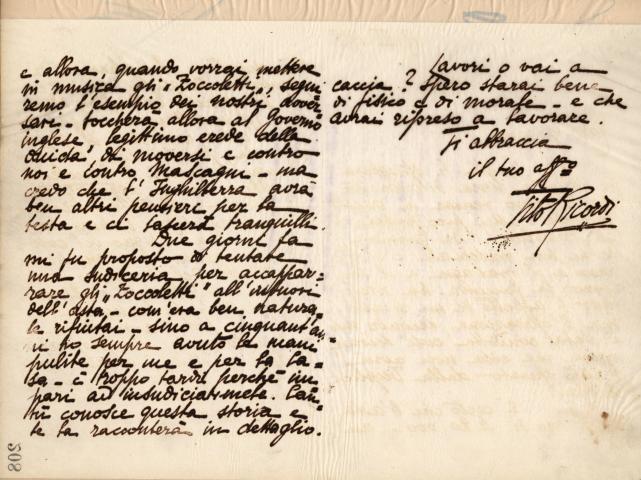 e allora, quando vorrai mettere
in musica gli "Zoccoletti", segui
remo l'esempio dei nostri avver
sari - toccherà allora al governo
inglese, legittimo erede della
Ouida, di moversi e contro
noi e contro Mascagni - ma
credo che l'Inghilterra avrà
ben altri pensieri per la
testa e ci lascerà tranquilli.
Due giorni fa
mi fu proposto di tentare
una sudiceria per accappar=
rare gli "Zoccoletti" all'infuori
dell'asta - com'era ben natura
le rifiutai - sino a cinquant'an
ni ho sempre avuto le mani
pulite per me e per la Ca=
sa - è troppo tardi perchè im
pari ad insudiciarmele. Clau
conosce questa storia e
te la racconterà in dettaglio.
Lavori o vai a
caccia? Spero starai bene
di fisico e di morale - e che
avrai ripreso a lavorare.
Ti abbraccia
il tuo aff=o
Tito Ricordi
208